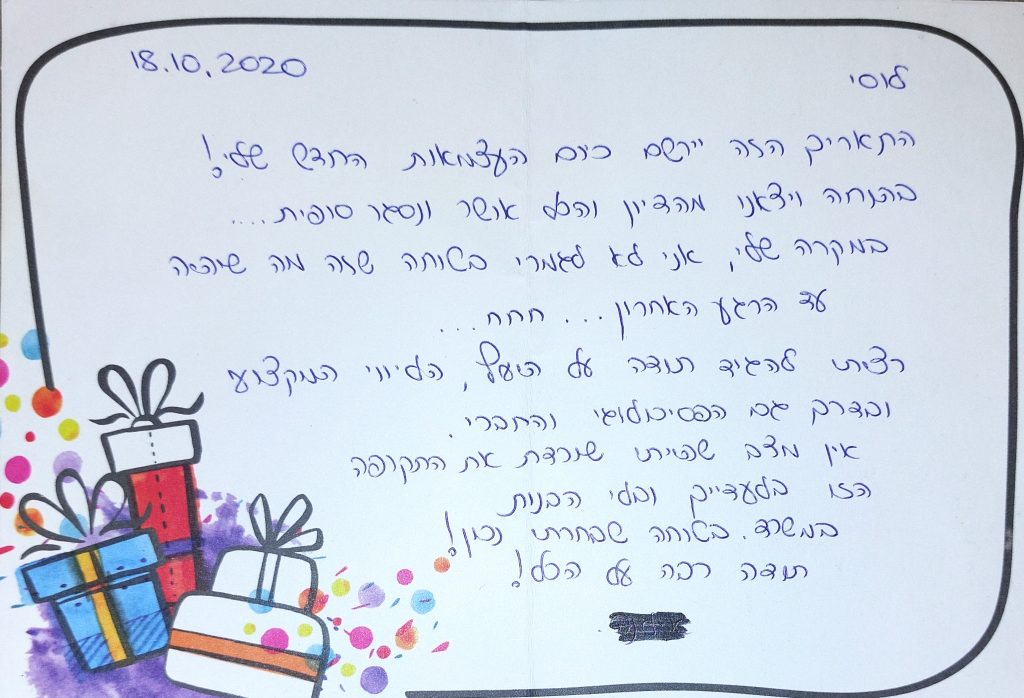 18.10.2020
לוסי
התאריך הזה יירשם כיום העצמאות החדש שלי!
בהנחה ויצאנו מהדיון והכל אושר ונסגר סופית....
במקרה שלי, אני לא לגמרי בטוחה שזה מה שיהיה
עד הרגע האחרון... חחח...
רציתי להגיד תודה על הטיפול, הליווי המקצועי
ובדרך גם הפסיכולוגי והחברי.
אין מצב שהייתי שורדת את התקופה
הזו בלעדייך ובלי הבנות
במשרד. בטוחה שבחרתי נכון!
תודה רבה על הכל!